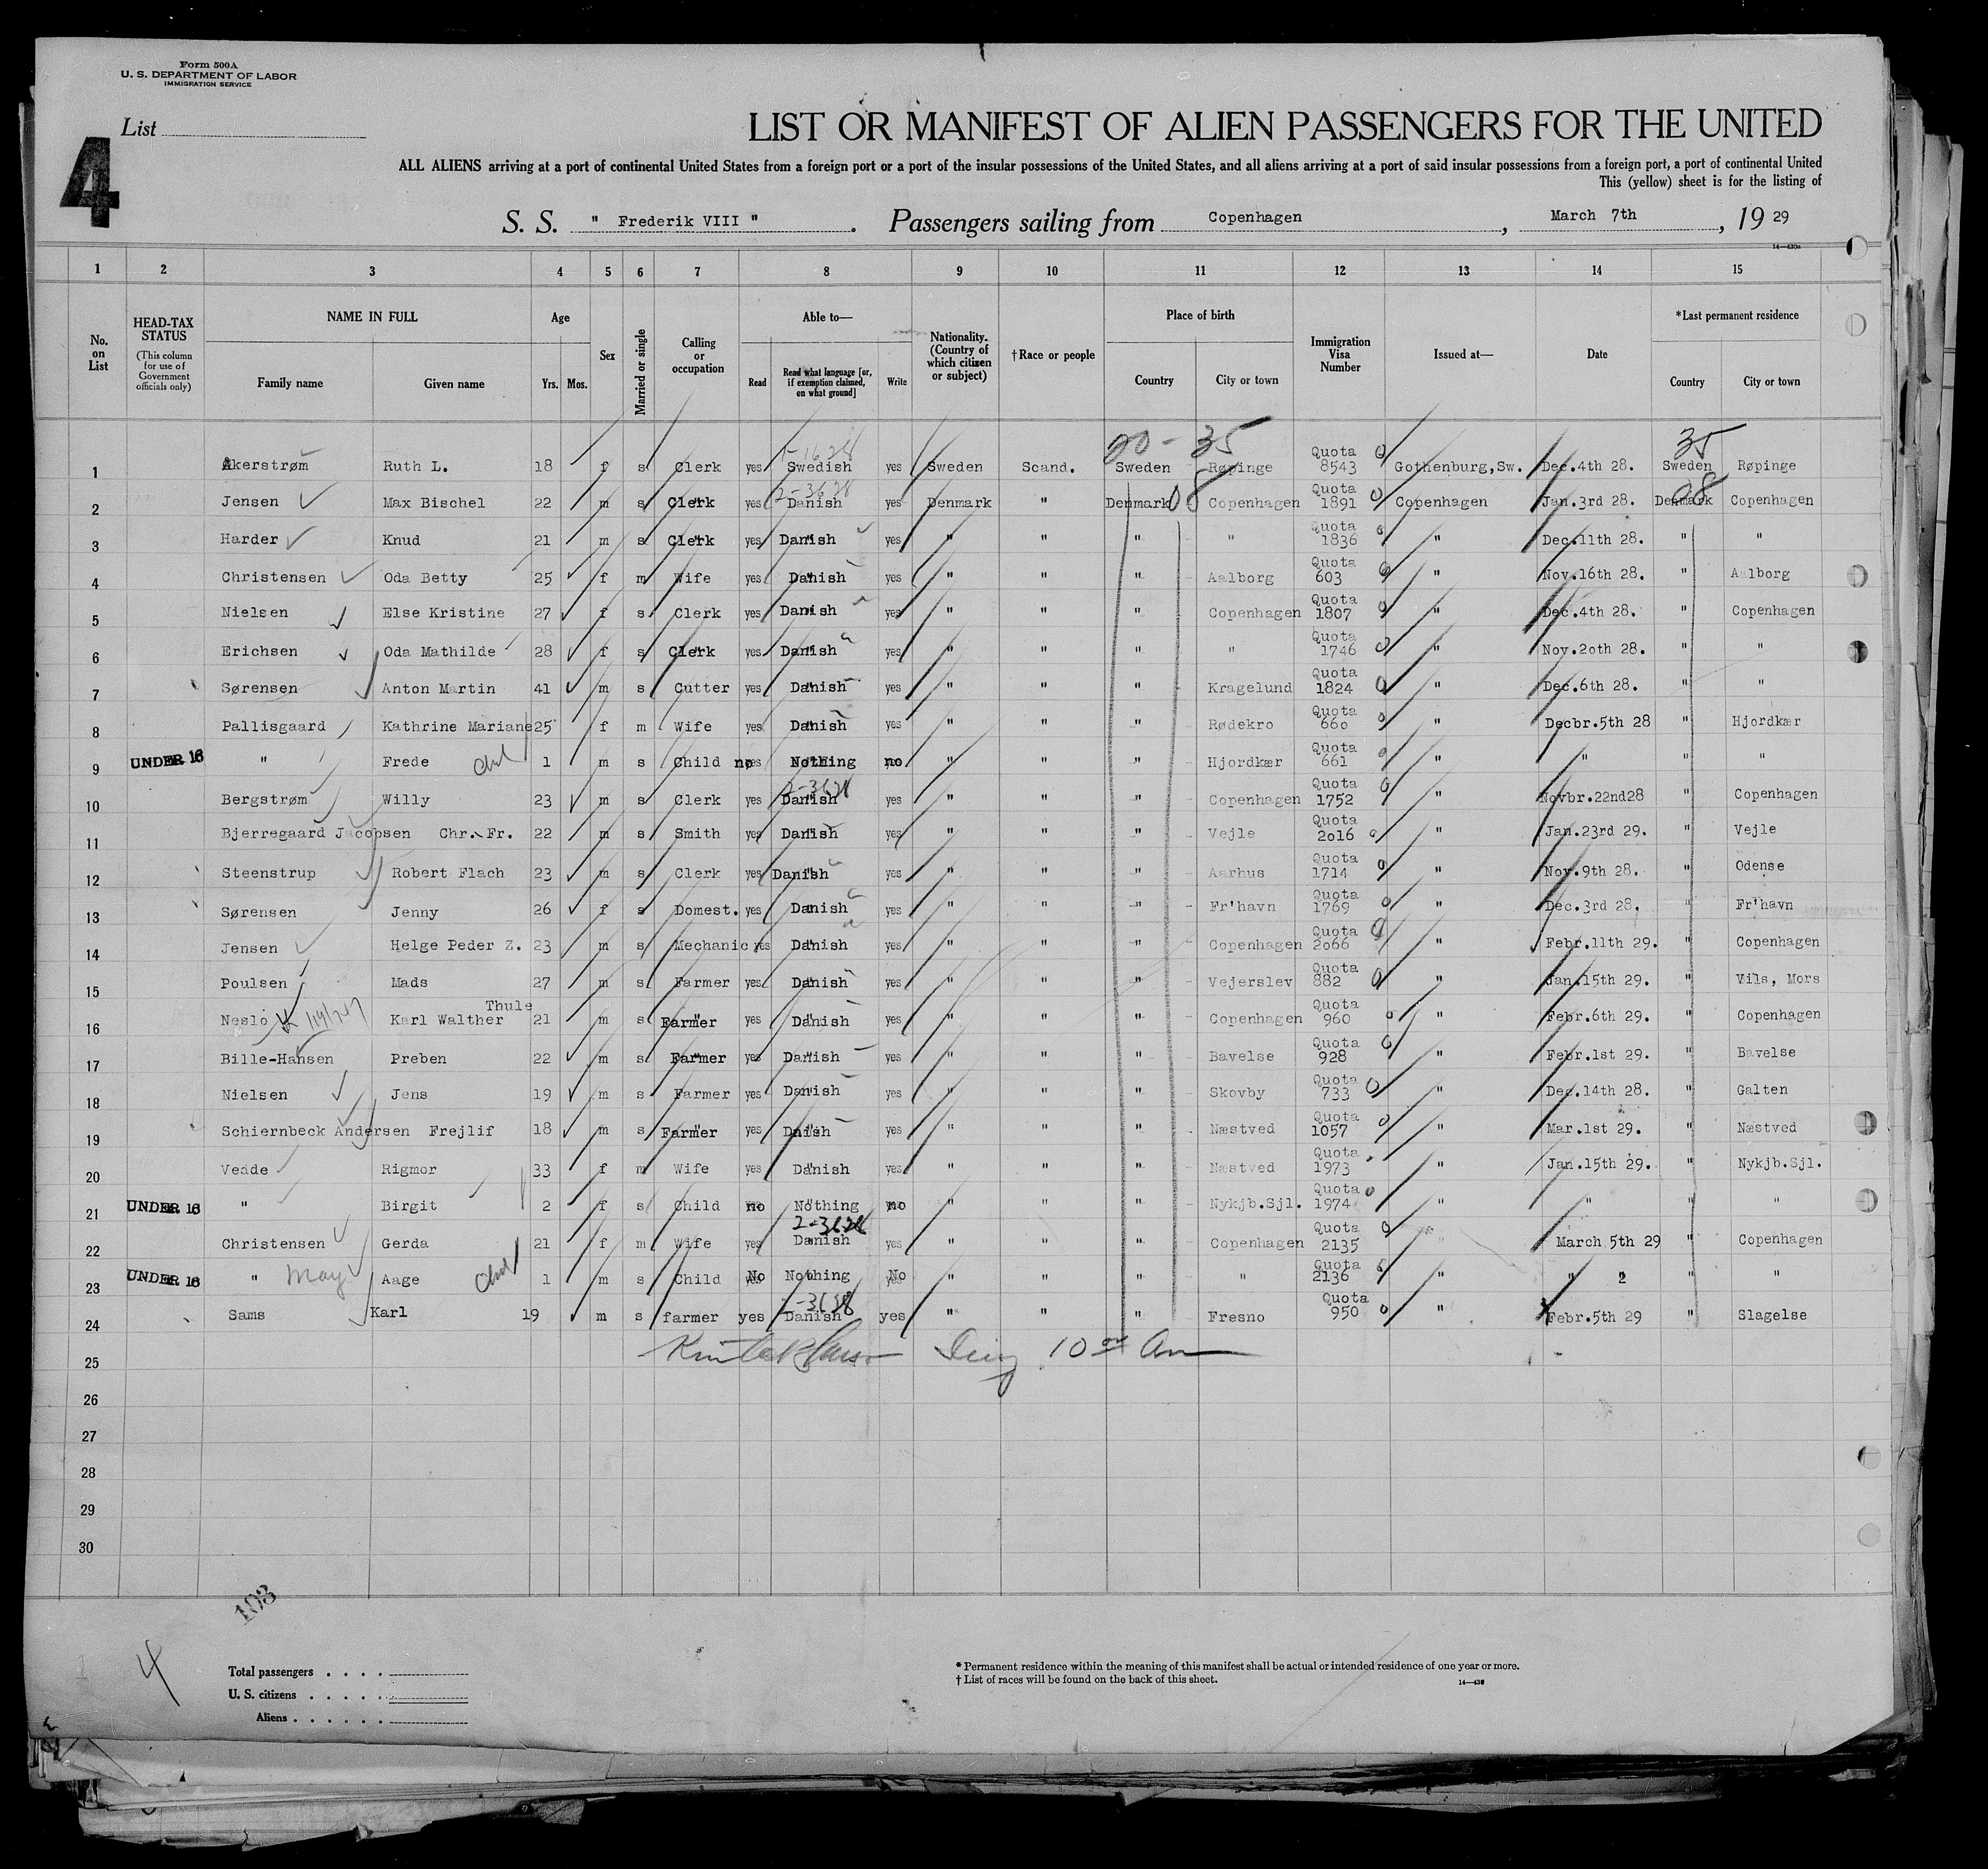 Form 500A
U. S. DEPARTMENT OF LABOR
IMMIGRATION SERVICE
List
4
LIST OR MANIFEST OF ALIEN PASSENGERS FOR THE UNITED
ALL ALIENS arriving at a port of continental United States from a foreign port or a port of the insular possessions of the United States, and all aliens arriving at a port of said insular possessions from a foreign port, a port of continental United
This (yellow) sheet is for the listing of
S. S. " Frederik VIII " . Passengers sailing from Copenhagen , March 7th , 19 29
14—430a
1 2 3 4 5 6 7 8 9 10 11 12 13 14 15
No. on List HEAD-TAX STATUS (This column for use of Government officials only) NAME IN FULL Family name Given name Age Yrs. Mos. Sex Married or single Calling or occupation Able to— Read Read what language [or, if exemption claimed, on what ground] Write Nationality. (Country of which citizen or subject) †Race or people Place of birth Country City or town Immigration Visa Number Issued at— Date *Last permanent residence Country City or town
20 - 35 35
1 Åkerstrøm Ruth L. 18 f s Clerk yes Swedish yes Sweden Scand. Sweden Røpinge Quota 8543 Gothenburg,Sw. Dec.4th 28. Sweden Røpinge
2-3628 08 08
2 Jensen Max Bischel 22 m s Clerk yes Danish yes Denmark " Denmark Copenhagen Quota 1891 Copenhagen Jan.3rd 28. Denmark Copenhagen
3 Harder Knud 21 m s Clerk yes Danish yes " " " " Quota 1836 " Dec.11th 28. " "
4 Christensen Oda Betty 25 f m Wife yes Danish yes " " " Aalborg Quota 603 " Nov.16th 28. " Aalborg
5 Nielsen Else Kristine 27 f s Clerk yes Danish yes " " " Copenhagen Quota 1807 " Dec.4th 28. " Copenhagen
6 Erichsen Oda Mathilde 28 f s Clerk yes Danish yes " " " " Quota 1746 " Nov.2oth 28. " "
7 Sørensen Anton Martin 41 m s Cutter yes Danish yes " " " Kragelund Quota 1824 " Dec.6th 28. " "
8 Pallisgaard Kathrine Mariane 25 f m Wife yes Danish yes " " " Rødekro Quota 660 " Decbr.5th 28 " Hjordkær
9 UNDER 16 " Frede 1 m s Child no Nothing no " " " Hjordkær Quota 661 " " " "
2-3628
10 Bergstrøm Willy 23 m s Clerk yes Danish yes " " " Copenhagen Quota 1752 " Novbr.22nd28 " Copenhagen
11 Bjerregaard Jacobsen Chr. Fr. 22 m s Smith yes Danish yes " " " Vejle Quota 2o16 " Jan.23rd 29. " Vejle
12 Steenstrup Robert Flach 23 m s Clerk yes Danish yes " " " Aarhus Quota 1714 " Nov.9th 28. " Odense
13 Sørensen Jenny 26 f s Domest. yes Danish yes " " " Fr'havn Quota 1769 " Dec.3rd 28. " Fr'havn
14 Jensen Helge Peder Z. 23 m s Mechanic yes Danish yes " " " Copenhagen Quota 2o66 " Febr.11th 29. " Copenhagen
15 Poulsen Mads 27 m s Farmer yes Danish yes " " " Vejerslev Quota 882 " Jan.15th 29. " Vils, Mors
Thule
16 Neslo Karl Walther 21 m s Farmer yes Danish yes " " " Copenhagen Quota 960 " Febr.6th 29. " Copenhagen
17 Bille-Hansen Preben 22 m s Farmer yes Danish yes " " " Bavelse Quota 928 " Febr.1st 29. " Bavelse
18 Nielsen Jens 19 m s Farmer yes Danish yes " " " Skovby Quota 733 " Dec.14th 28. " Galten
19 Schiernbeck Andersen Frejlif 18 m s Farmer yes Dnish yes " " " Næstved Quota 1057 " Mar.1st 29. " Næstved
20 Vedde Rigmor 33 f m Wife yes Danish yes " " " Næstved Quota 1973 " Jan.15th 29. " Nykjb.Sjl.
21 UNDER 16 " Birgit 2 f s Child no Nothing no " " " Nykjb.Sjl. Quota 1974 " " " "
2-3628
22 Christensen Gerda 21 f m Wife yes Danish yes " " " Copenhagen Quota 2135 " March 5th 29 " Copenhagen
23 UNDER 16 " May Aage 1 m s Child No Nothing No " " " " Quota 2136 " " 2 " "
2-3628
24 Sams Karl 19 m s farmer yes Danish yes " " " Fresno Quota 950 " Febr.5th 29 " Slagelse
25
26
27
28
29
30
108
4
Total passengers . . . .
U. S. citizens . . . . .
Aliens . . . . . .
* Permanent residence within the meaning of this manifest shall be actual or intended residence of one year or more.
† List of races will be found on the back of this sheet.
14—430